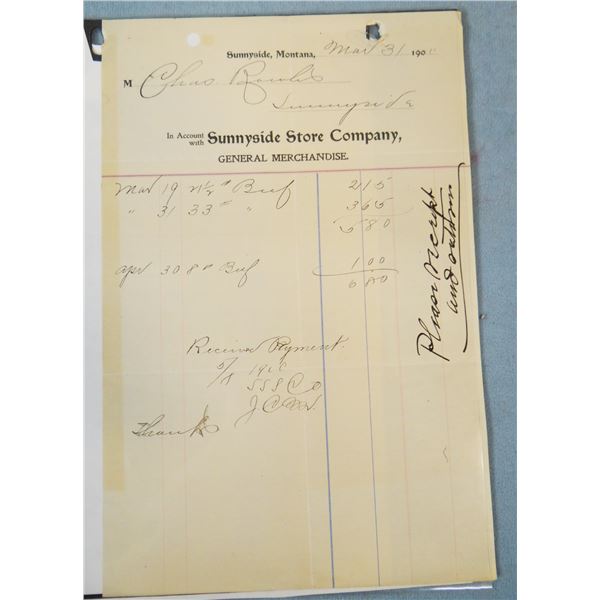 Sunnyside, Montana, Mar 31 190
M Chas
Sunnyside
In Account with Sunnyside Store Company,
GENERAL MERCHANDISE.
Mar 19 Beef 215
" 31 33# " 365
580
Apr 30 8# Beef 1 00
6 80
Received Payment
5/1
SSS Co
Thanks
Please receipt
and return